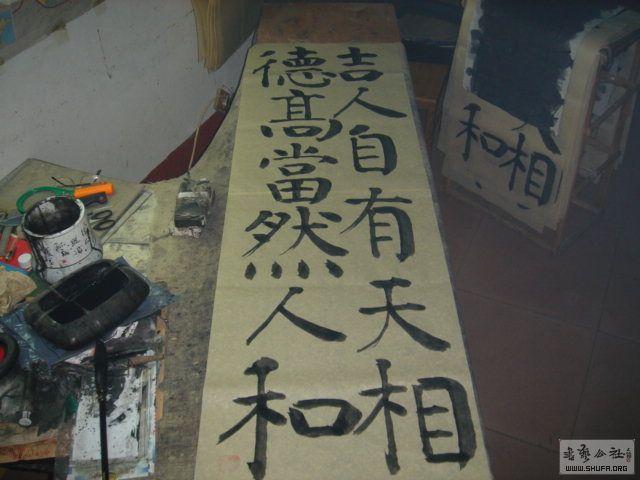 吉人自有天相
德高當然人和
相
和
书艺公社
WWW.SHUFA.ORG